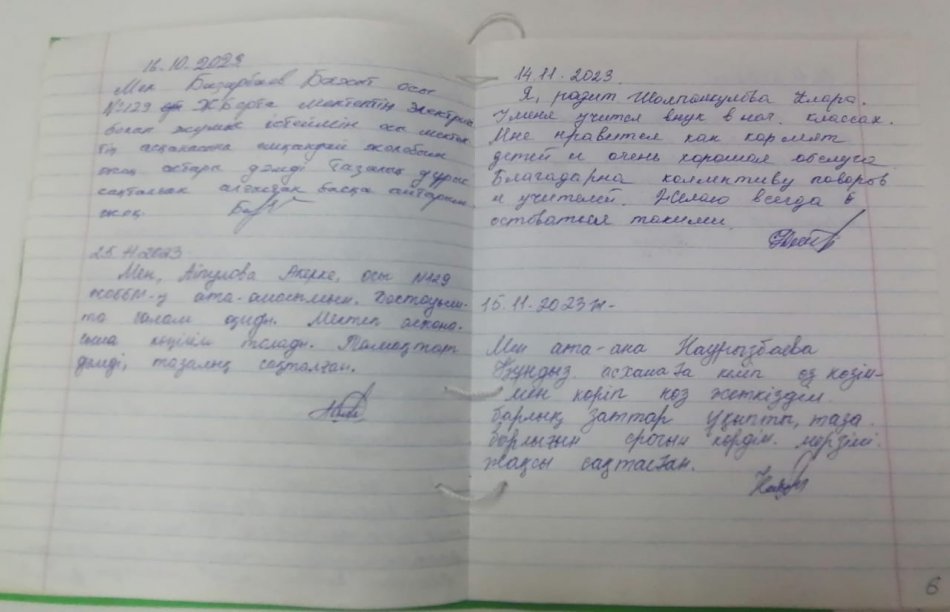 16.10.2023
Мен Базарбаев Бахыт осы
№129 Жборта мектептің электрик
болап жұмыс істеймін осы мектеп
тің асханасына ешқандай жолобам
жоқ астары дәмді тазалық дұрыс
сақталған алғыстан басқа айтарым
жоқ.
25.11.2023
Мен, Акерке, осы №129
жоббм-ң ата-анасымын.
та балам оқиды. Мектеп асхана-
сына көңілім толады. Тамақтары
дәмді, тазалық сақталған.
14.11.2023.
Я, родит Шолпанкулова Клара.
У меня учится внук в нач. классах.
Мне нравится как кормят
детей и очень хорошая обслуга
Благадарна коллективу поваров
и учителей. Желаю всегда
оставаться такими.
15.11.2023ж.
Мен ата-ана Наурызбаева
Құндыз асханаға кіріп өз көзім-
мен көріп көз жеткіздім.
барлық заттар ұқыпты, таза.
барлығын срогын көрдім. мерзімі.
жақсы сақталған.
6